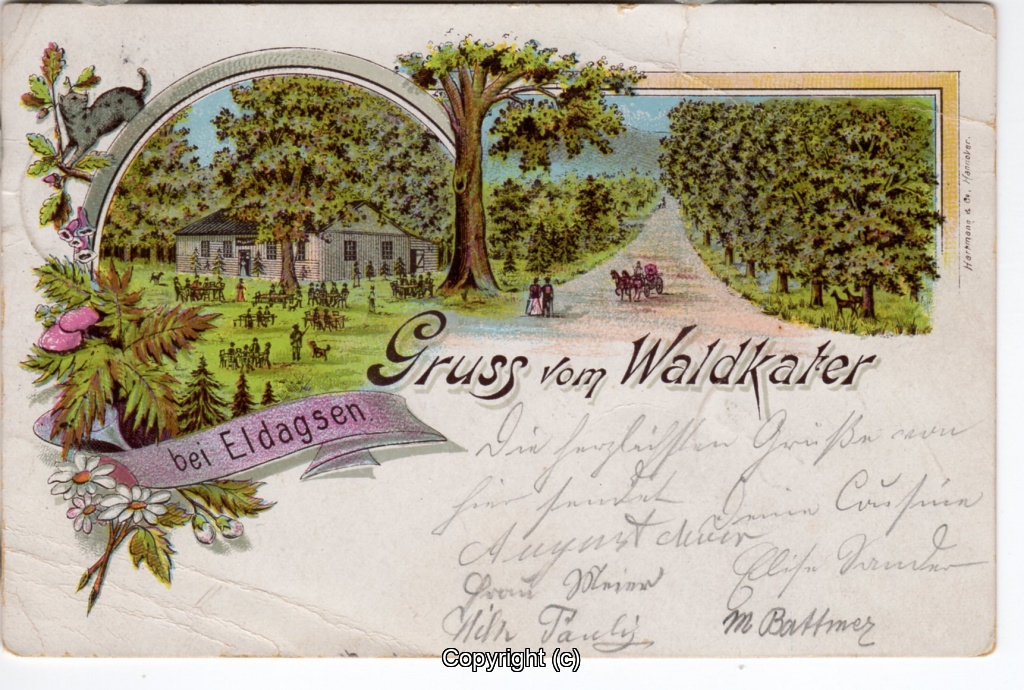 Gruss vom Waldkater
bei Eldagsen
Hartmann & Co. Hannover.
Die herzlichsten Grüße von
hier sendet Deine Cousine
August Meier Elise Sander
Frau Meier
Wilh Pauly M Battmer
Copyright (c)